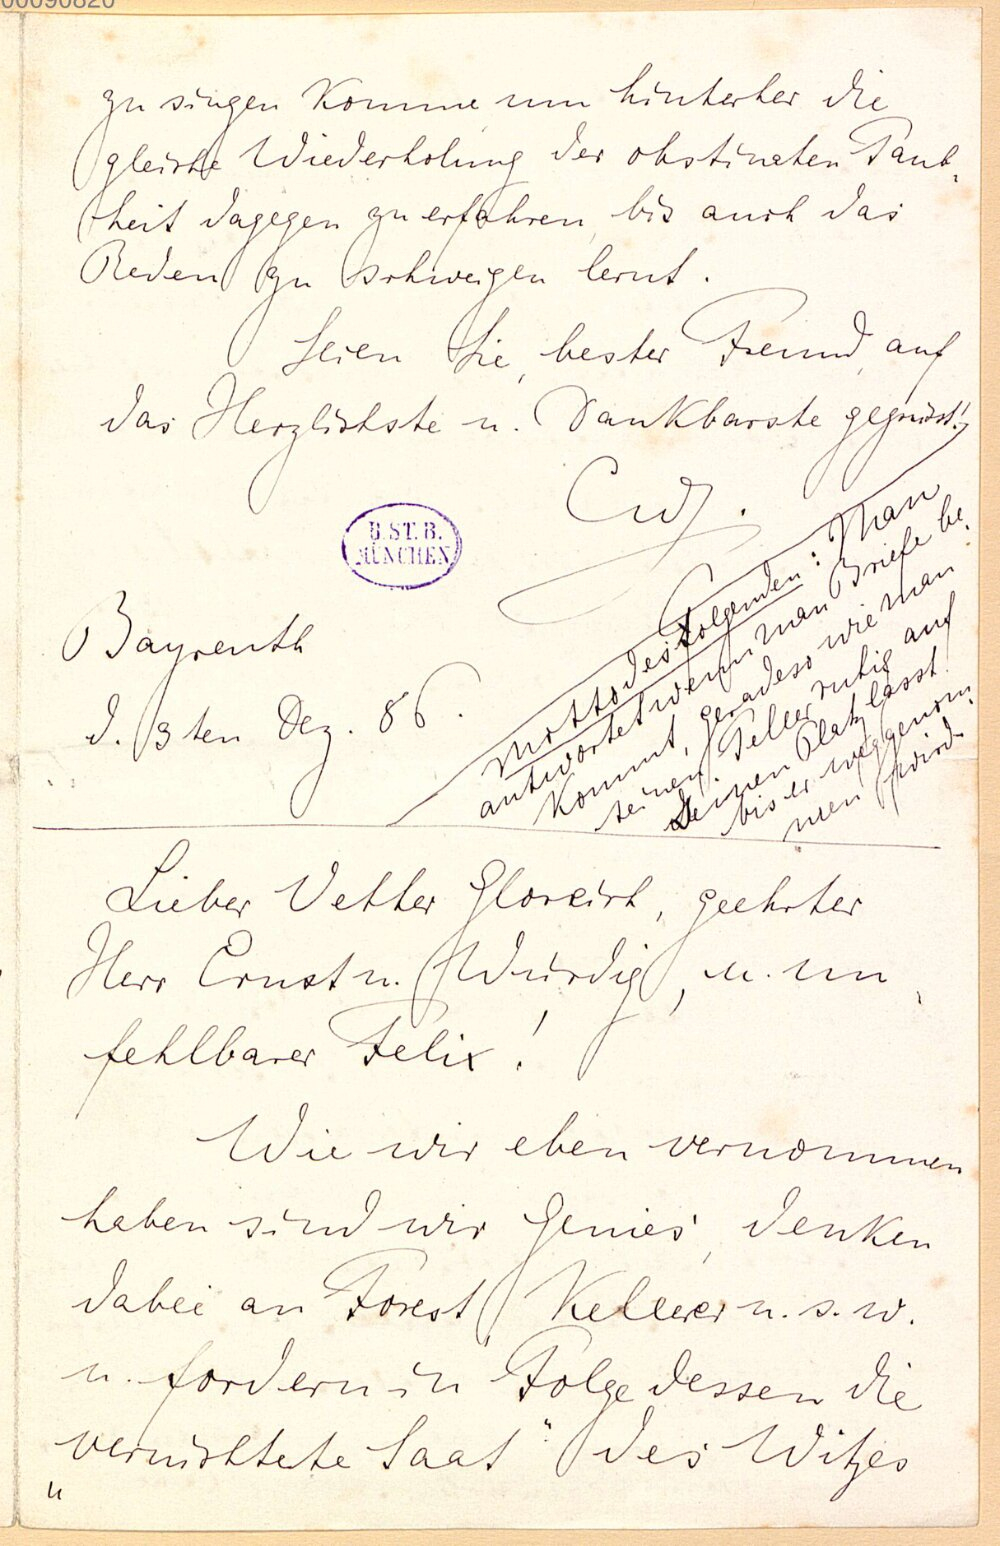 00090820
zu singen komme um hinterher die
gleiche Wiederholung der obstinaten Taub-
heit dagegen zu erfahren, bis auch das
Reden zu schweigen lernt.
Seien Sie, bester Freund, auf
das Herzlichste u. Dankbarste gegrüsst!
CW.
B.ST.B.
MÜNCHEN
Bayreuth
d. 3ten Dez. 86.
Motto des Folgenden: Man
antwortet wenn man Briefe be-
kommt, geradeso wie man
seinen Teller ruhig auf
seinen Platz lässt
bis er weggenom-
men wird.
Lieber Vetter, geehrter
Herr Ernst u. Würdig, u. un-
fehlbarer Felix!
Wie wir eben vernommen
haben sind wir Genies, denken
dabei an Forest, Kellerer u. s. w.
u. fordern in Folge dessen die
„vernichtete Saat" des Witzes